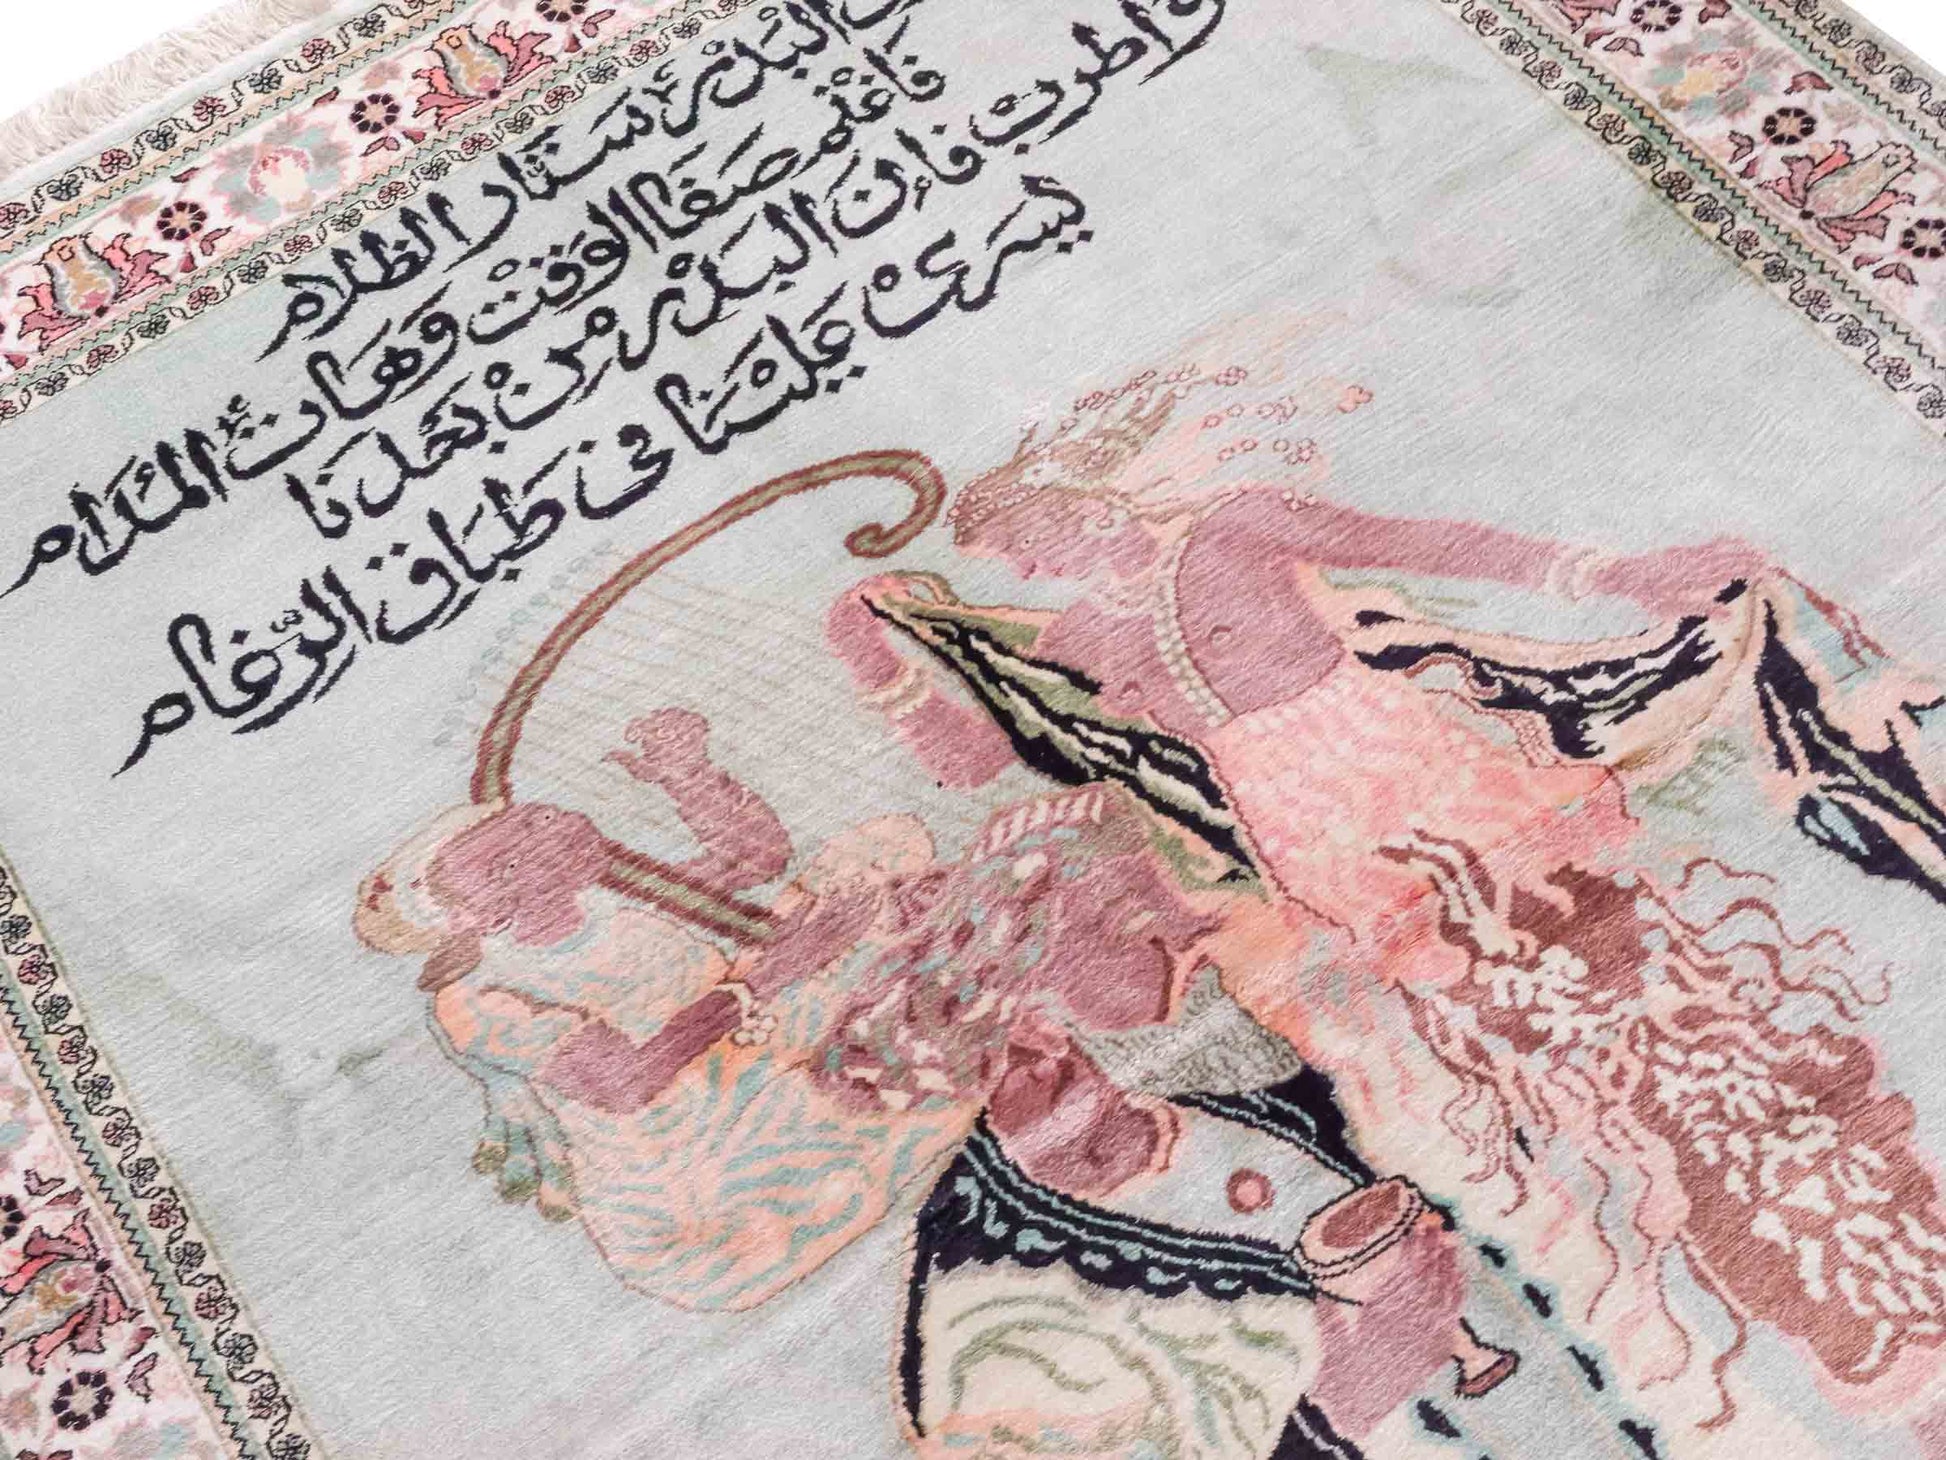 البدر ستار الظلام
فاغنم صفا الوقت وهات المدام
واطرب فإن البدر من بعدنا
يسرى علينا فى طباق الرغام